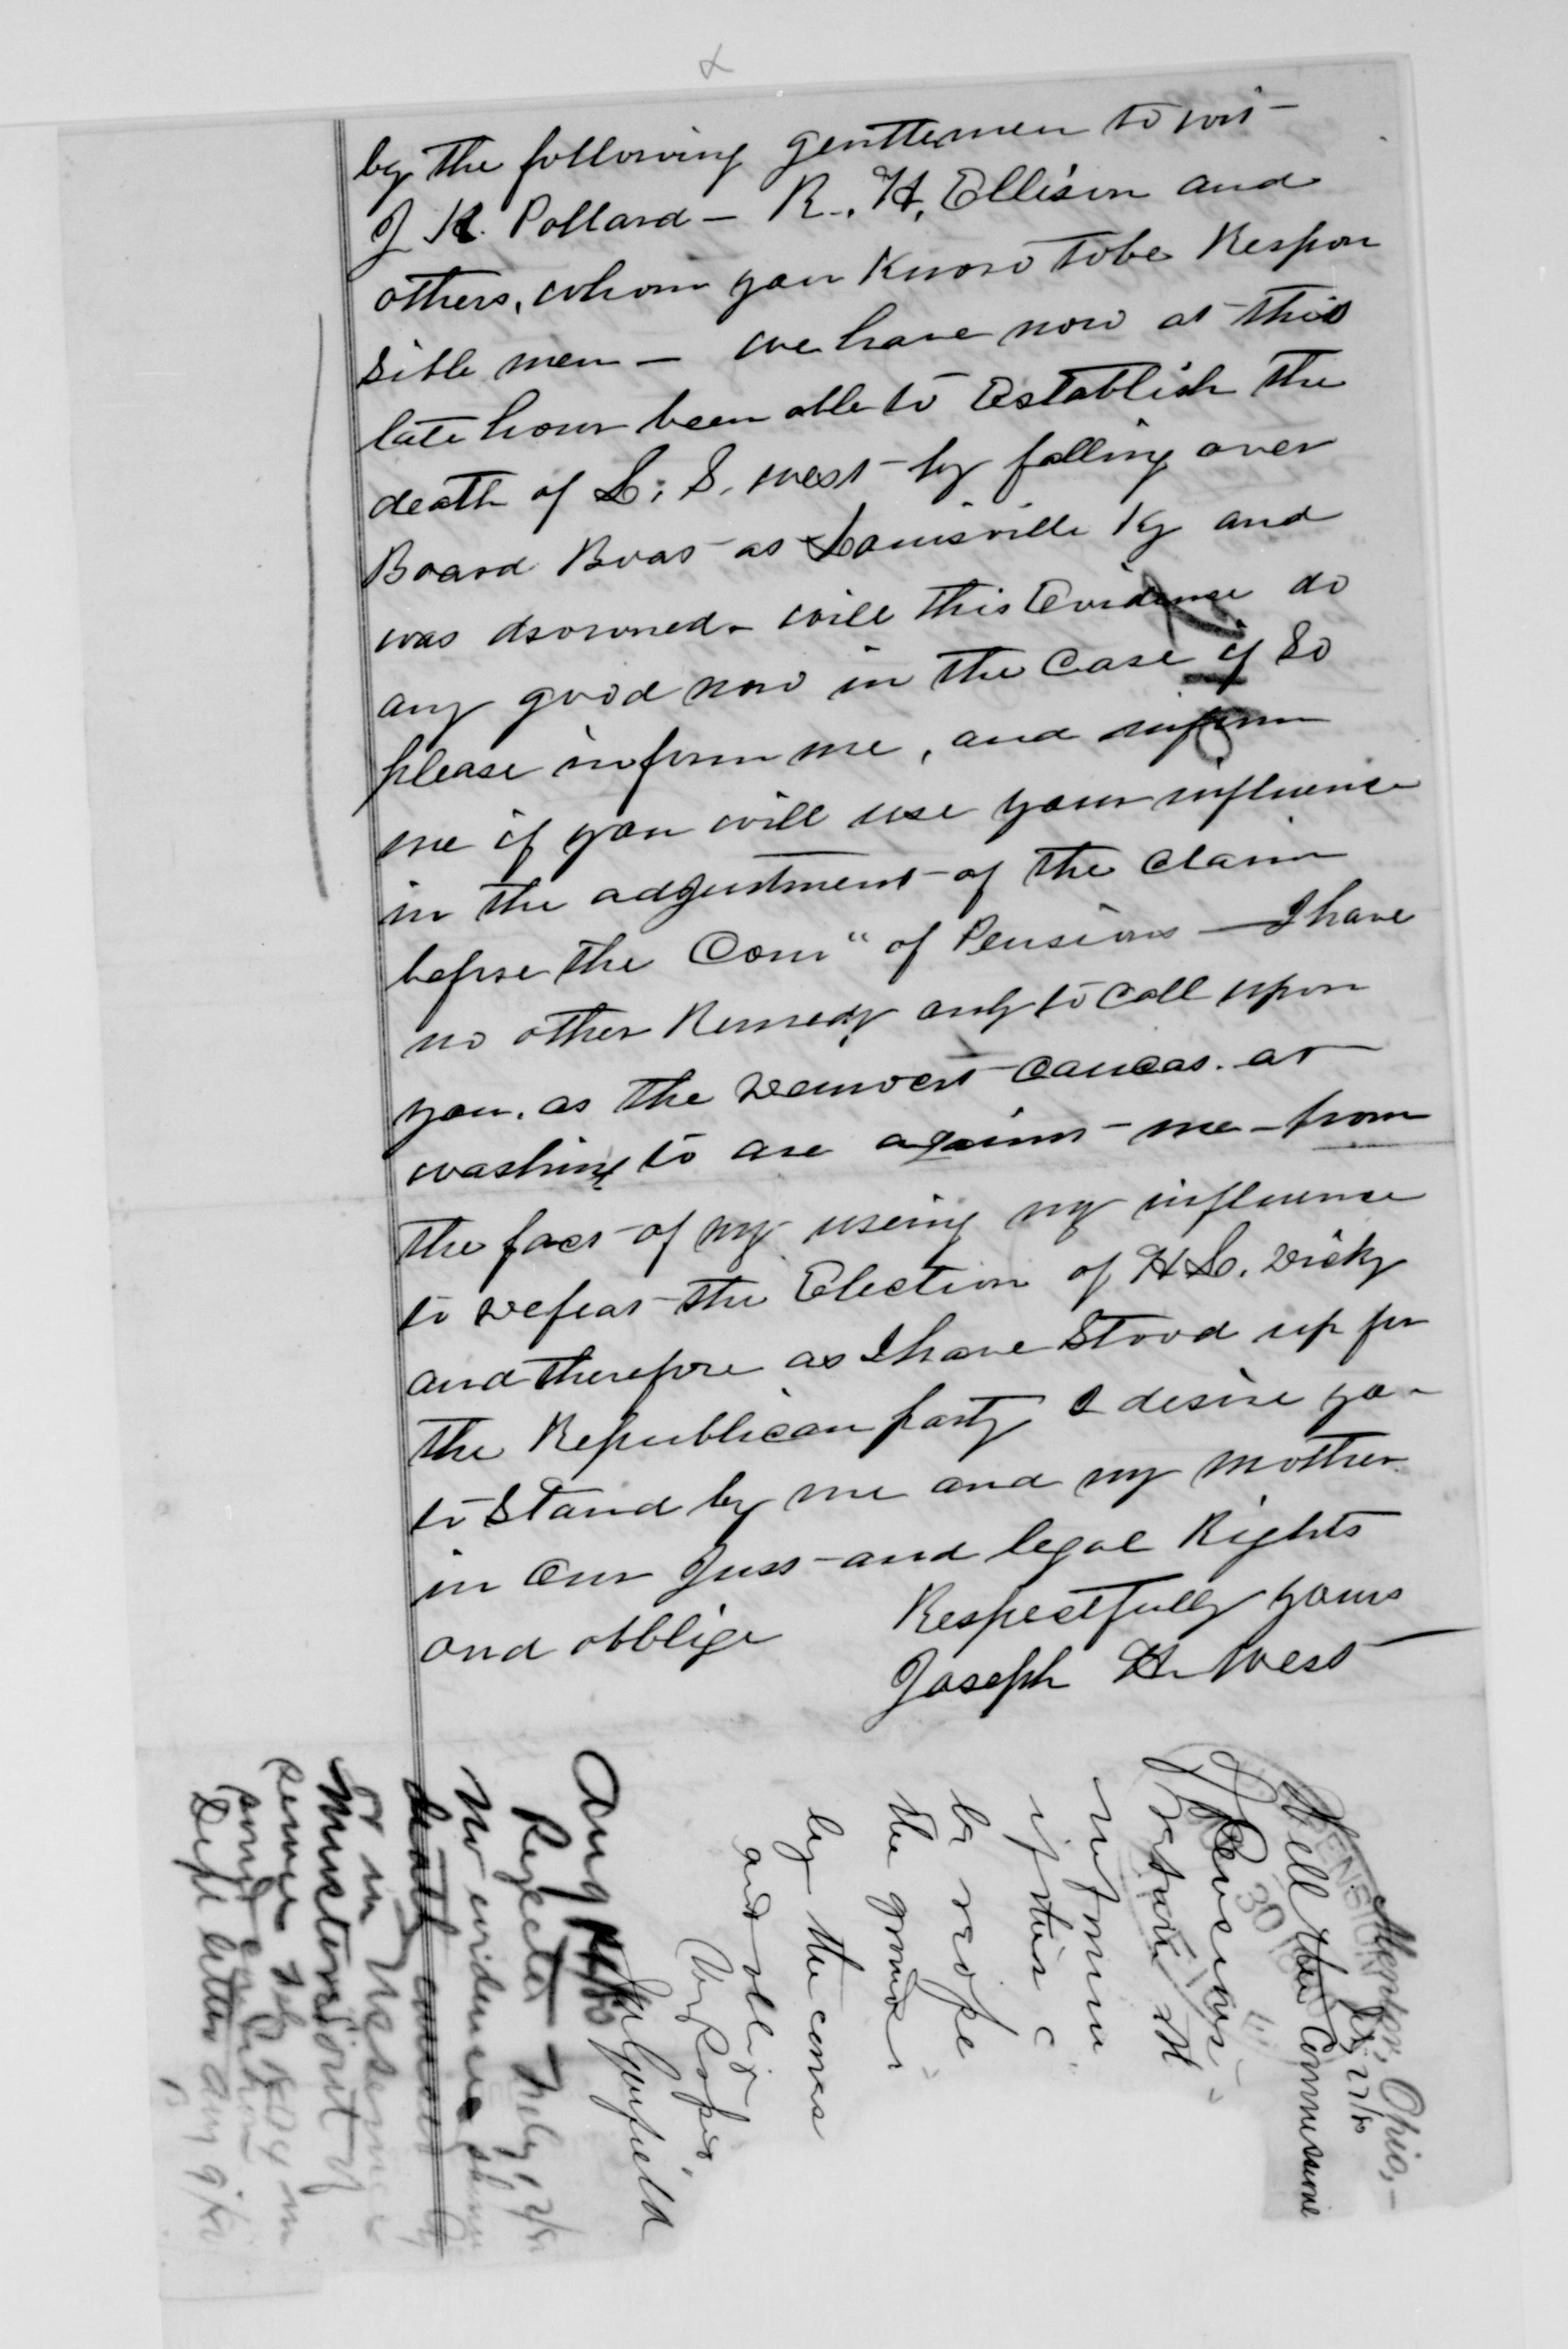 by the following gentlemen to wit
J K. Pollard — R. H. Ellison and
others, whom you Know to be Respon
sible men — we have now at this
late hour been able to Establish the
death of L. S. West by falling over
Board Boat at Louisville Ky and
was drowned — will this Evidence do
any good now in the Case if So
please inform me, and inform
me if you will use your influence
in the adjustment of the claim
before the Com" of Pensions — I have
no other Remedy only to call upon
you, as the Democrt Caucas. at
washing to are against me — from
the fact of my useing my influence
to Defeat the Election of H L. Dicky
and therefore as I have Stood up for
the Republican party I desire you
to Stand by me and my mother
in Our Just and legal Rights
and obblige
Respectfully yours
Joseph H West
Mentor, Ohio,
27/80
Will the Commissioner
Pensions
inform
if this c
be
the grounds
by the
and oblige
Very Resp
J A Garfield
Aug
Rejected July
No evidence
death
or in
Muster out of
service Feb
Dept letter Aug 9/80